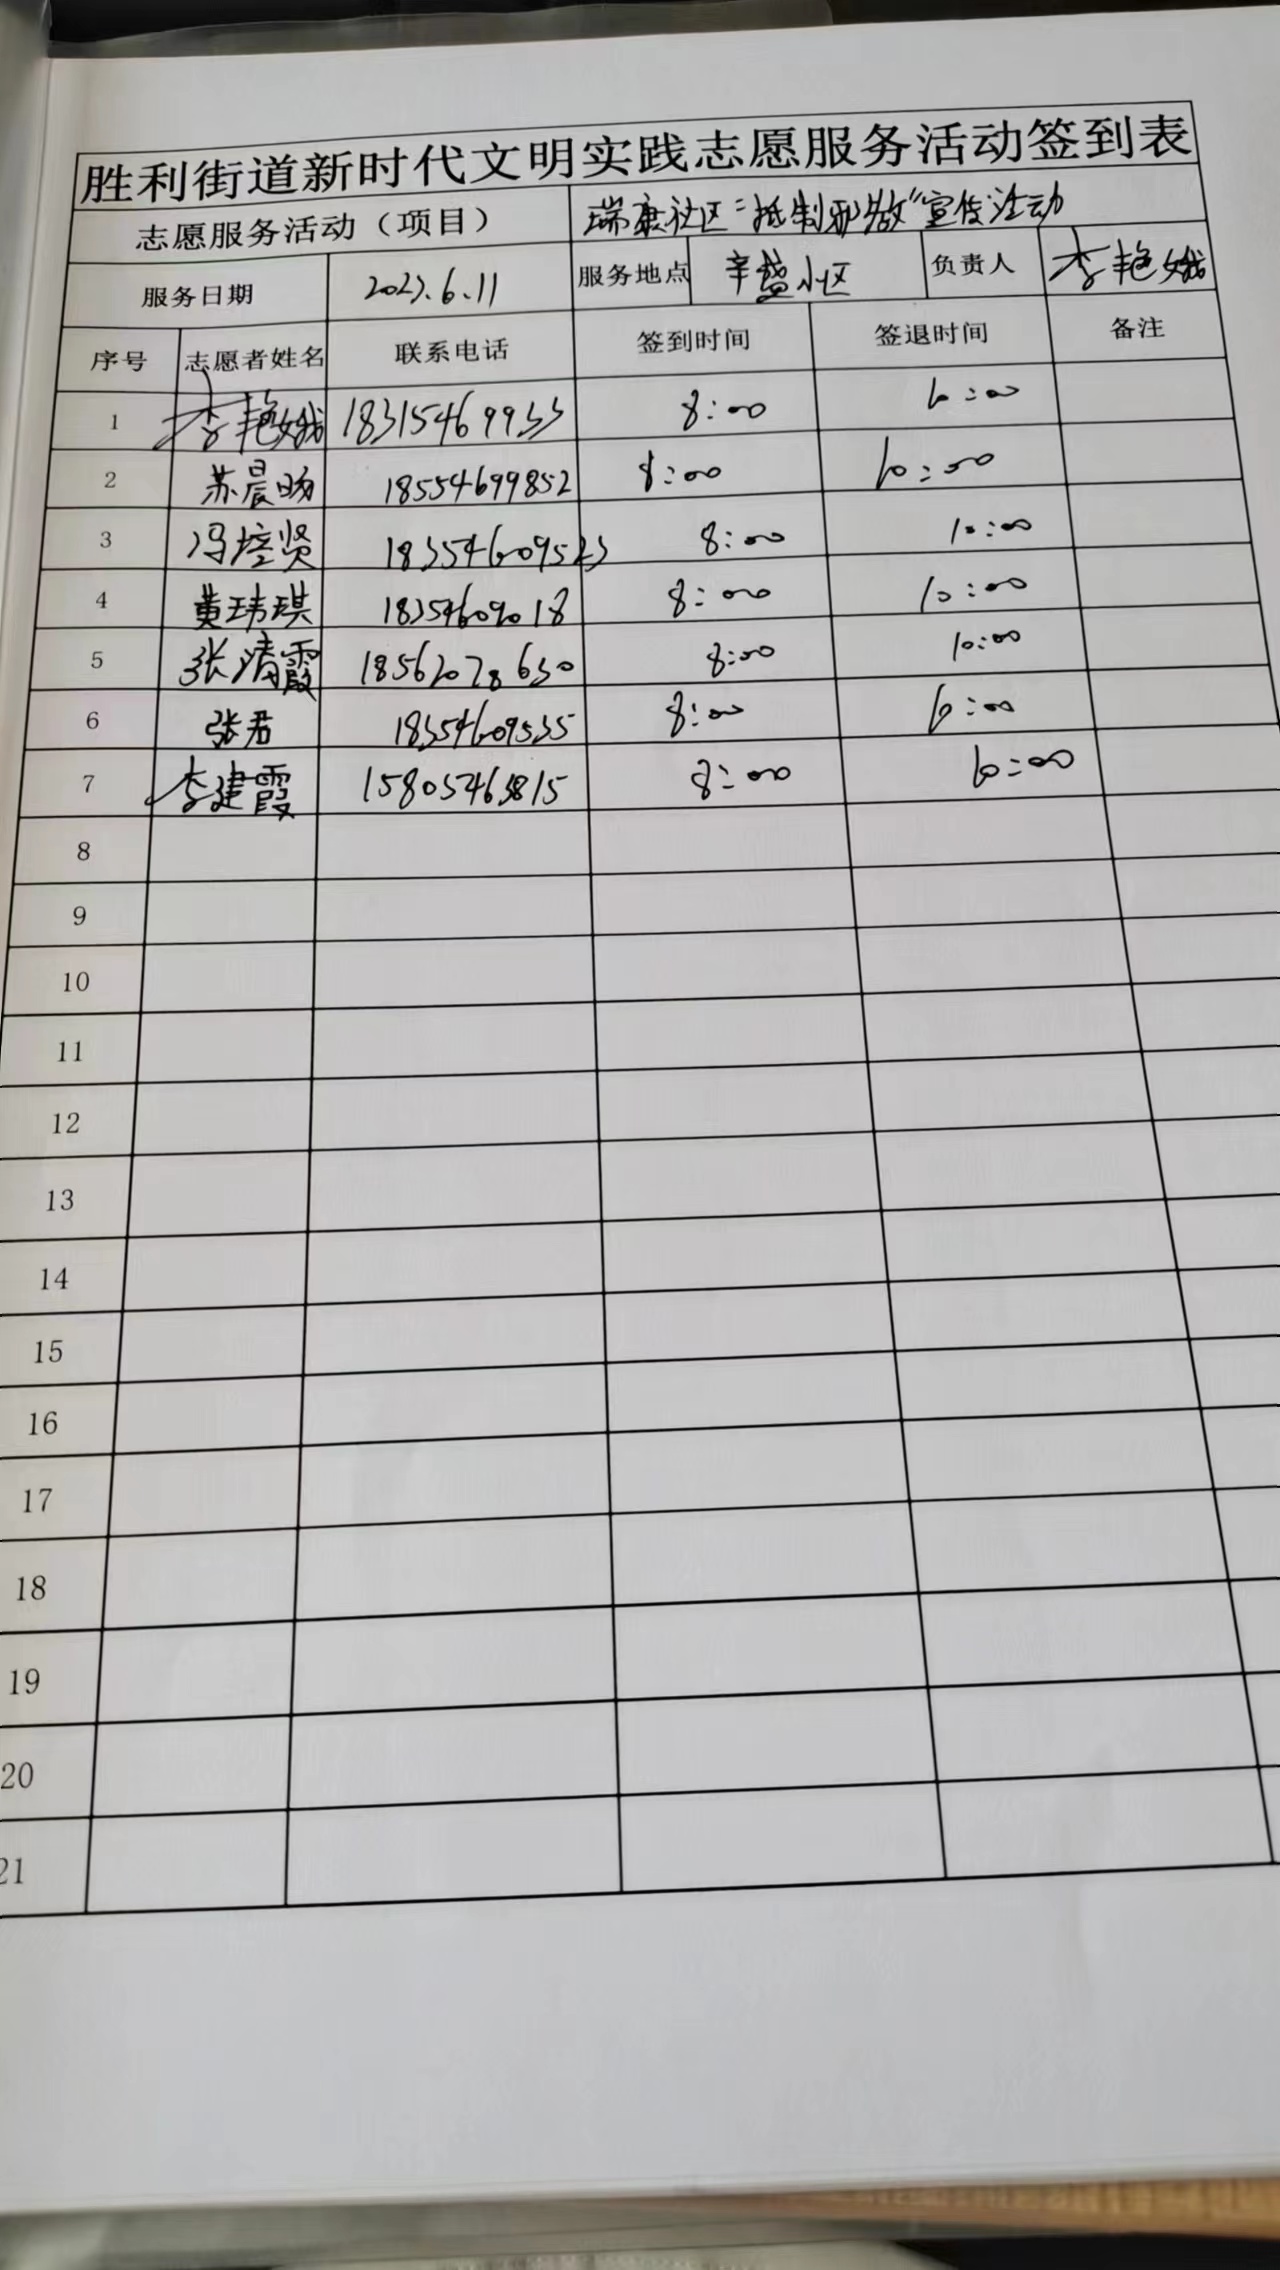 胜利街道新时代文明实践志愿服务活动签到表
志愿服务活动（项目） 瑞康社区“抵制邪教”宣传活动
服务日期 2023.6.11 服务地点 辛盛小区 负责人 李艳娥
序号 志愿者姓名 联系电话 签到时间 签退时间 备注
1 李艳娥 18315469933 8:00 10:00
2 苏晨旸 18554699852 8:00 10:00
3 冯培贤 8:00 10:00
4 黄玮琪 8:00 10:00
5 张清霞 18562028630 8:00 10:00
6 张君 18354609535 8:00 10:00
7 李建霞 15805463815 8:00 10:00
8
9
10
11
12
13
14
15
16
17
18
19
20
21